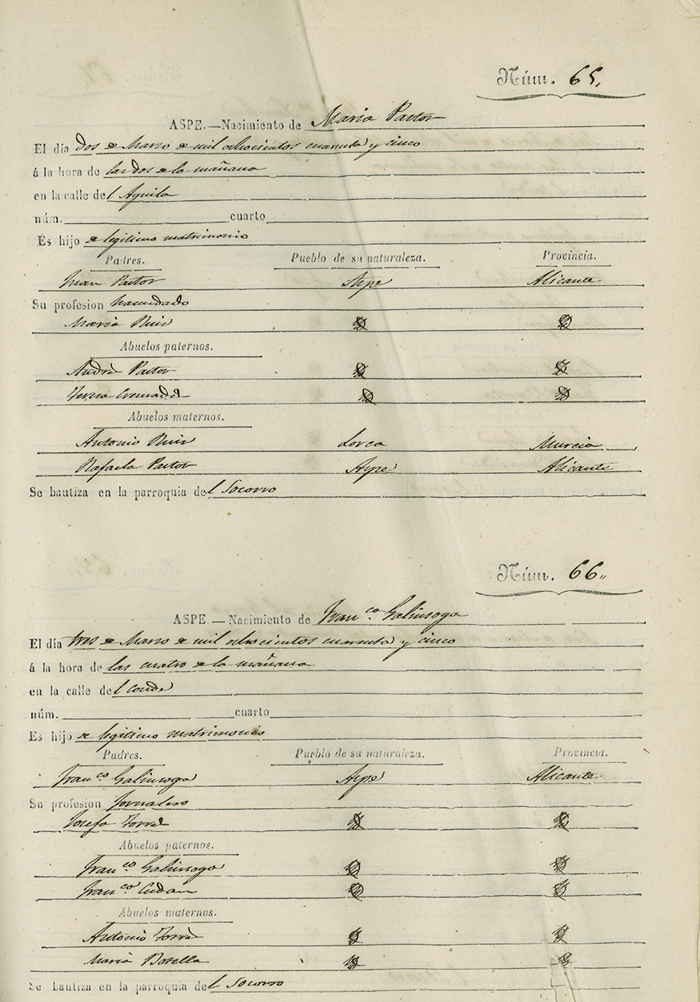 Núm. 65.
ASPE.—Nacimiento de Maria Pastor
El dia dos de Marzo de mil ochocientos cuarenta y cinco
á la hora de las dos de la mañana
en la calle del Aguila
núm. cuarto
Es hijo de legitimo matrimonio
Padres. Pueblo de su naturaleza. Provincia.
Juan Pastor Aspe Alicante
Su profesion hacendado
Maria Ruiz
Abuelos paternos.
Andrés Pastor
Teresa Cremades
Abuelos maternos.
Antonio Ruiz Lorca Murcia
Rafaela Pastor Aspe Alicante
Se bautiza en la parroquia del Socorro
Núm. 66.
ASPE.—Nacimiento de Franco. Galinsoga
El dia tres de Marzo de mil ochocientos cuarenta y cinco
á la hora de las cuatro de la mañana
en la calle del conde
núm. cuarto
Es hijo de legitimo matrimonio
Padres. Pueblo de su naturaleza. Provincia.
Franco. Galinsoga Aspe Alicante
Su profesion Jornalero
Josefa Torre
Abuelos paternos.
Franco. Galinsoga
Franca.
Abuelos maternos.
Antonio Torre
Maria Botella
Se bautiza en la parroquia del Socorro